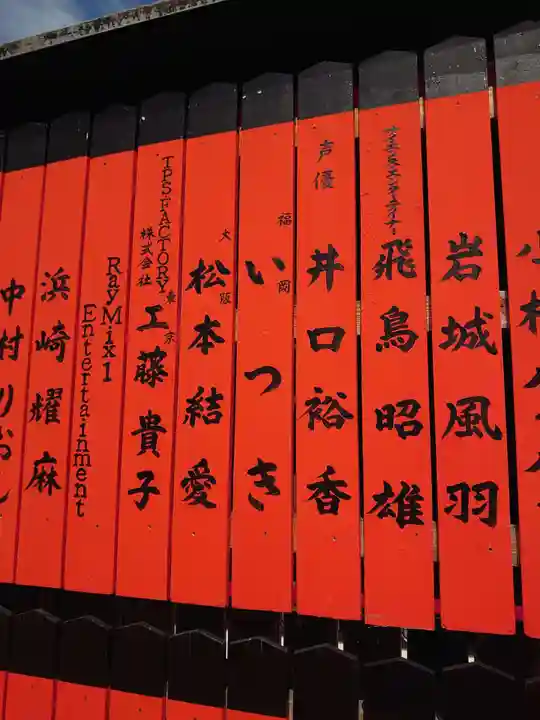 岩城風羽
サイエンスエンターテイナー
飛鳥昭雄
声優
井口裕香
福岡
いつき
大阪
松本結愛
TPS FACTORY
株式会社
東京
工藤貴子
RayMix1
Entertainment
浜崎耀麻
中村りおん